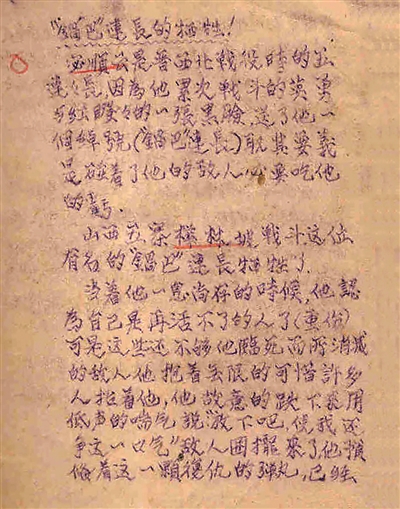 "鍋巴"連長的牺牲!
必順公是晋西北戰役時的
連長,因為他累次戰斗的英勇
的一張黑臉,送了他一
個綽號("鍋巴"連長)
是碰着了他的敌人必要吃他
的虧.
山西五寨樺林坡戰斗这位
有名的"鍋巴"連長牺牲了
当着他一息尚存的時候,他認
為自己是再活不了的人了(重伤)
可是这些还不够他臨死而所消滅
的敌人他抱着無限的可惜許多
人抬着他,他故意的跌下来用
低声的喘气說"放下吧,使我还
争这一口气"敌人圍攏來了他預
備着这一顆復仇的弹丸,已經